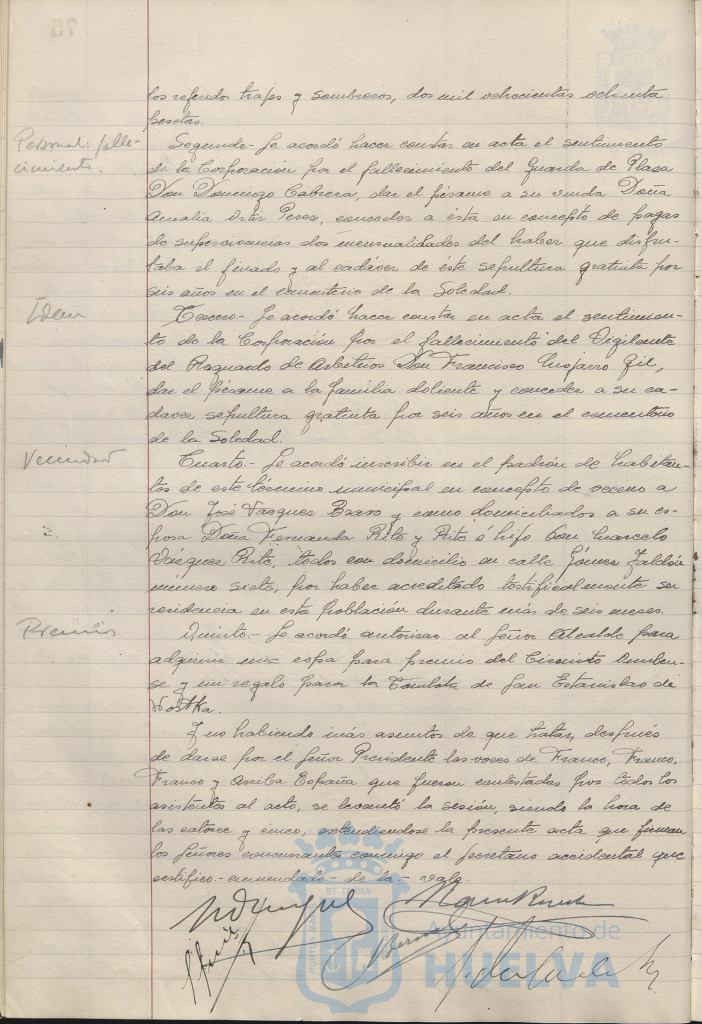 los referidos trajes y sombreros, dos mil ochocientas ochenta
pesetas.
Personal: falle-
cimiento.
Segundo.- Se acordó hacer constar en acta el sentimiento
de la Corporación por el fallecimiento del Guarda de Plaza
Don Domingo Cabrera, dar el pésame a su viuda Doña
Amalia Ortiz Perez, conceder a ésta en concepto de pagas
de supervivencias dos mensualidades del haber que disfru-
taba el finado y al cadáver de éste sepultura gratuita por
seis años en el cementerio de la Soledad.
Idem
Tercero.- Se acordó hacer constar en acta el sentimien-
to de la Corporación por el fallecimiento del Vigilante
del Resguardo de Arbitrios Don Francisco Mojarro Gil,
dar el pésame a la familia doliente y conceder a su ca-
daver sepultura gratuita por seis años en el cementerio
de la Soledad.
Vecindad
Cuarto.- Se acordó inscribir en el padrón de habitan-
tes de este término municipal en concepto de vecino a
Don José Vazquez Bravo y como domiciliados a su es-
posa Doña Fernanda Rite y Rite é hijo Don Marcelo
Vázquez Rite, todos con domicilio en calle Gómez Jaldón
número siete, por haber acreditado testificalmente su
residencia en esta población durante más de seis meses.
Premios
Quinto.- Se acordó autorizar al Señor Alcalde para
adquirir una copa para premio del Circuito Onuben-
se y un regalo para la Tombola de San Estanislao de
Kostka.
Y no habiendo más asuntos de que tratar, después
de darse por el Señor Presidente las voces de Franco, Franco,
Franco y Arriba España que fueron contestadas por todos los
asistentes al acto, se levantó la sesión, siendo la hora de
las catorce y cinco, extendiendose la presente acta que firman
los Señores concurrentes conmigo el Secretario accidental que
certifico.- enmendado - de la - vale.
Ayuntamiento de
HUELVA